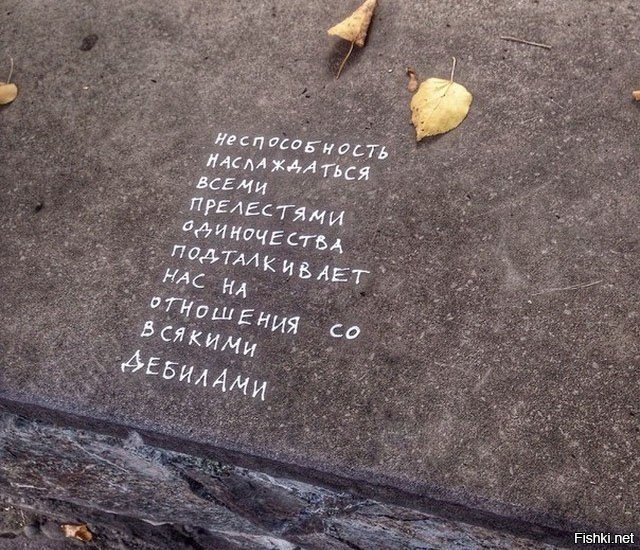 НЕСПОСОБНОСТЬ
НАСЛАЖДАТЬСЯ
ВСЕМИ
ПРЕЛЕСТЯМИ
ОДИНОЧЕСТВА
ПОДТАЛКИВАЕТ
НАС НА
ОТНОШЕНИЯ СО
ВСЯКИМИ
ДЕБИЛАМИ
Fishki.net